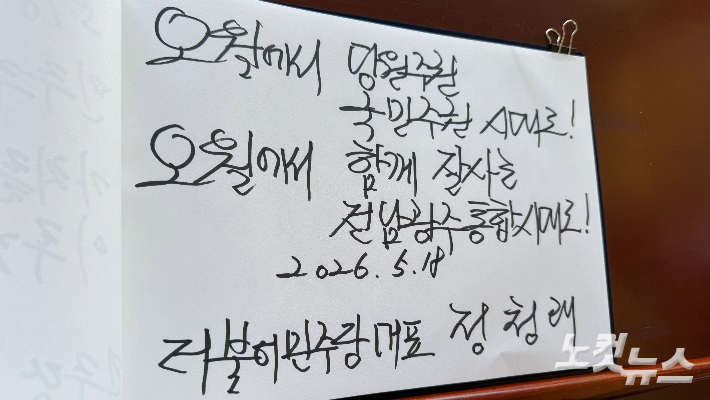 오월에서 당원주권
국민주권 시대로!
오월에서 함께 잘사는
전남광주통합시대로!
2026. 5. 18
더불어민주당 대표 정청래
노컷뉴스